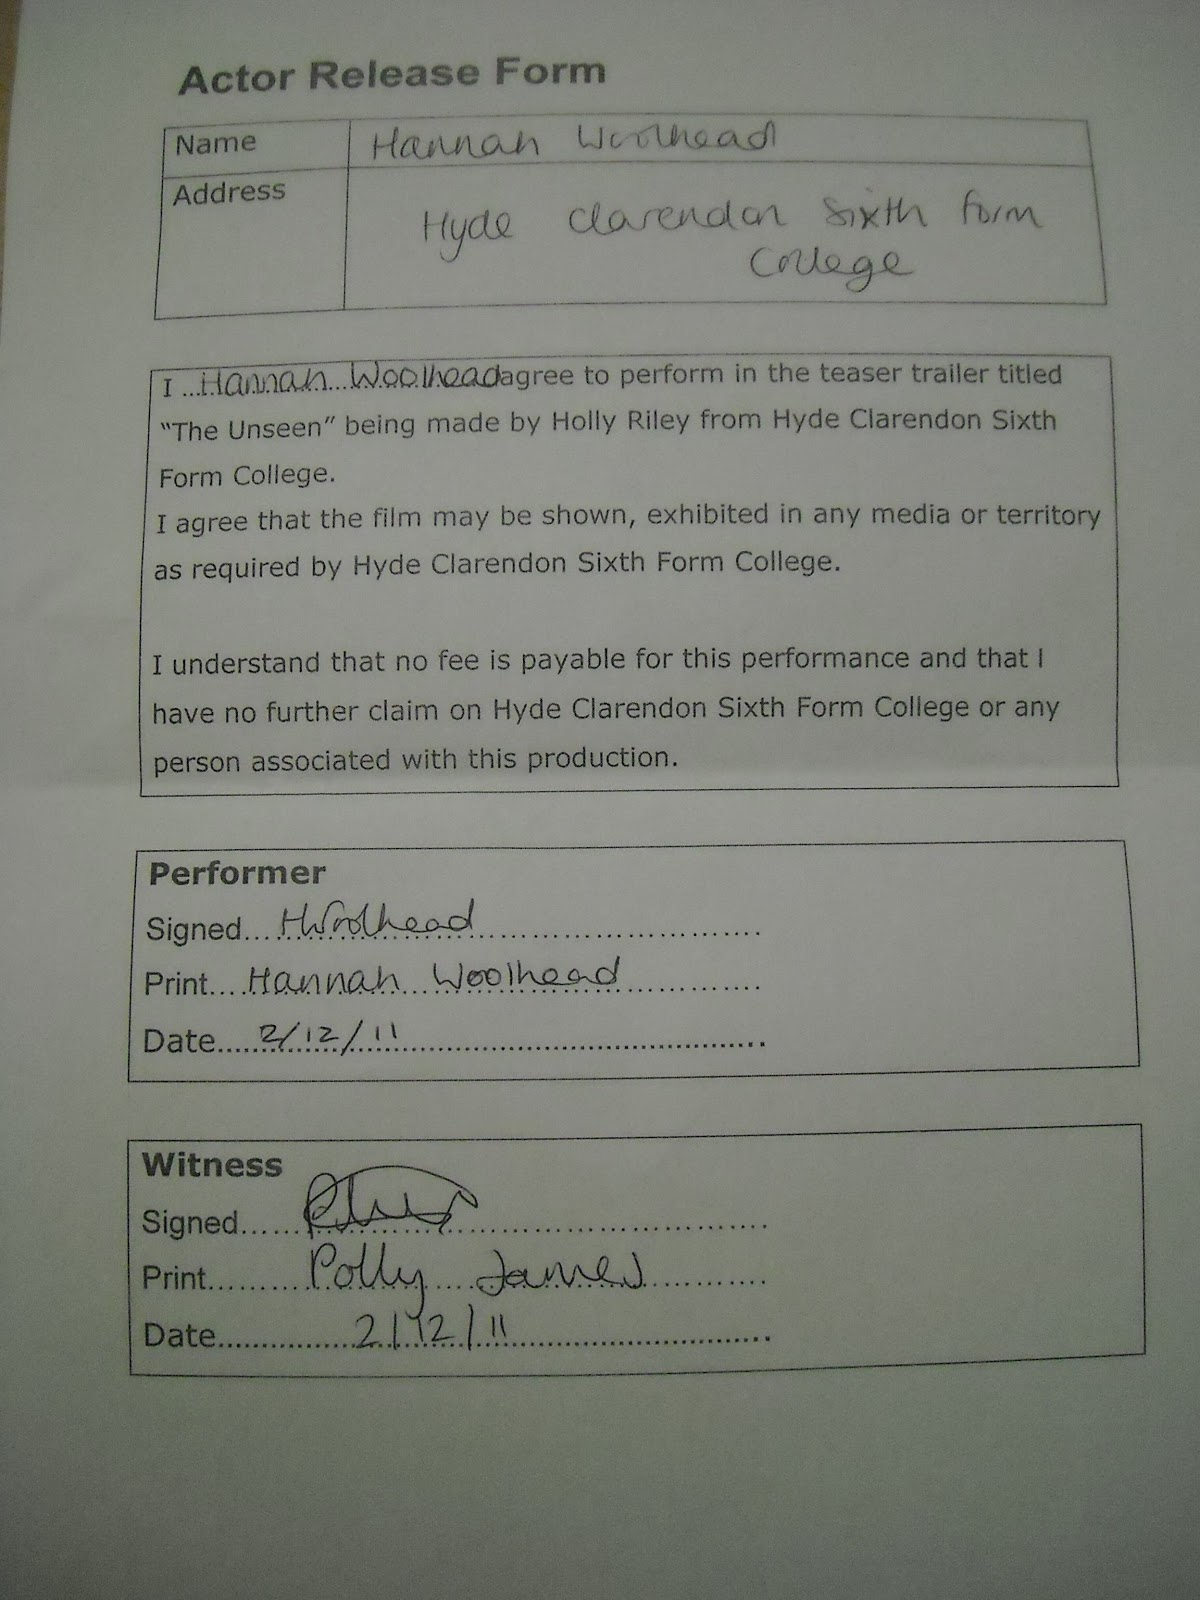 Actor Release Form
Name Hannah Woolhead
Address Hyde Clarendon Sixth Form
College
I ...Hannah...Woolhead agree to perform in the teaser trailer titled
“The Unseen” being made by Holly Riley from Hyde Clarendon Sixth
Form College.
I agree that the film may be shown, exhibited in any media or territory
as required by Hyde Clarendon Sixth Form College.
I understand that no fee is payable for this performance and that I
have no further claim on Hyde Clarendon Sixth Form College or any
person associated with this production.
Performer
Signed... HWoolhead
Print.... Hannah Woolhead
Date..... 2/12/11
Witness
Signed......
Print........ Polly James
Date.............. 2/12/11